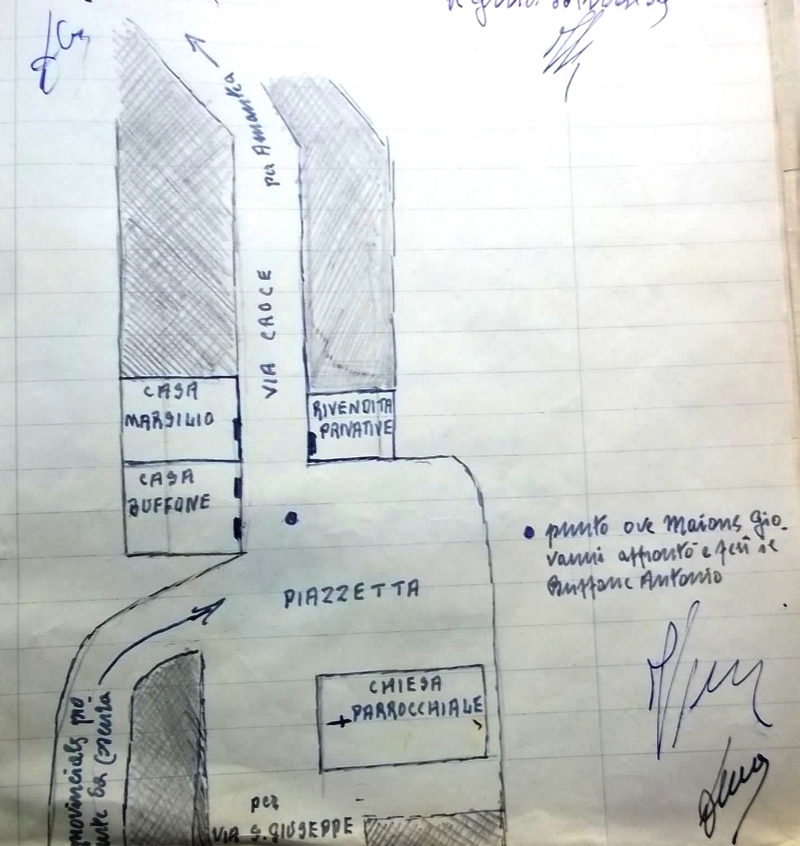 per Amantea
VIA CROCE
CASA
MARSILIO
RIVENDITA
PRIVATIVE
CASA
BUFFONE
• punto ove Maione Gio-
vanni affrontò e ferì il
Buffone Antonio
PIAZZETTA
CHIESA
PARROCCHIALE
provinciale pro
da Cosenza
per
VIA S. GIUSEPPE